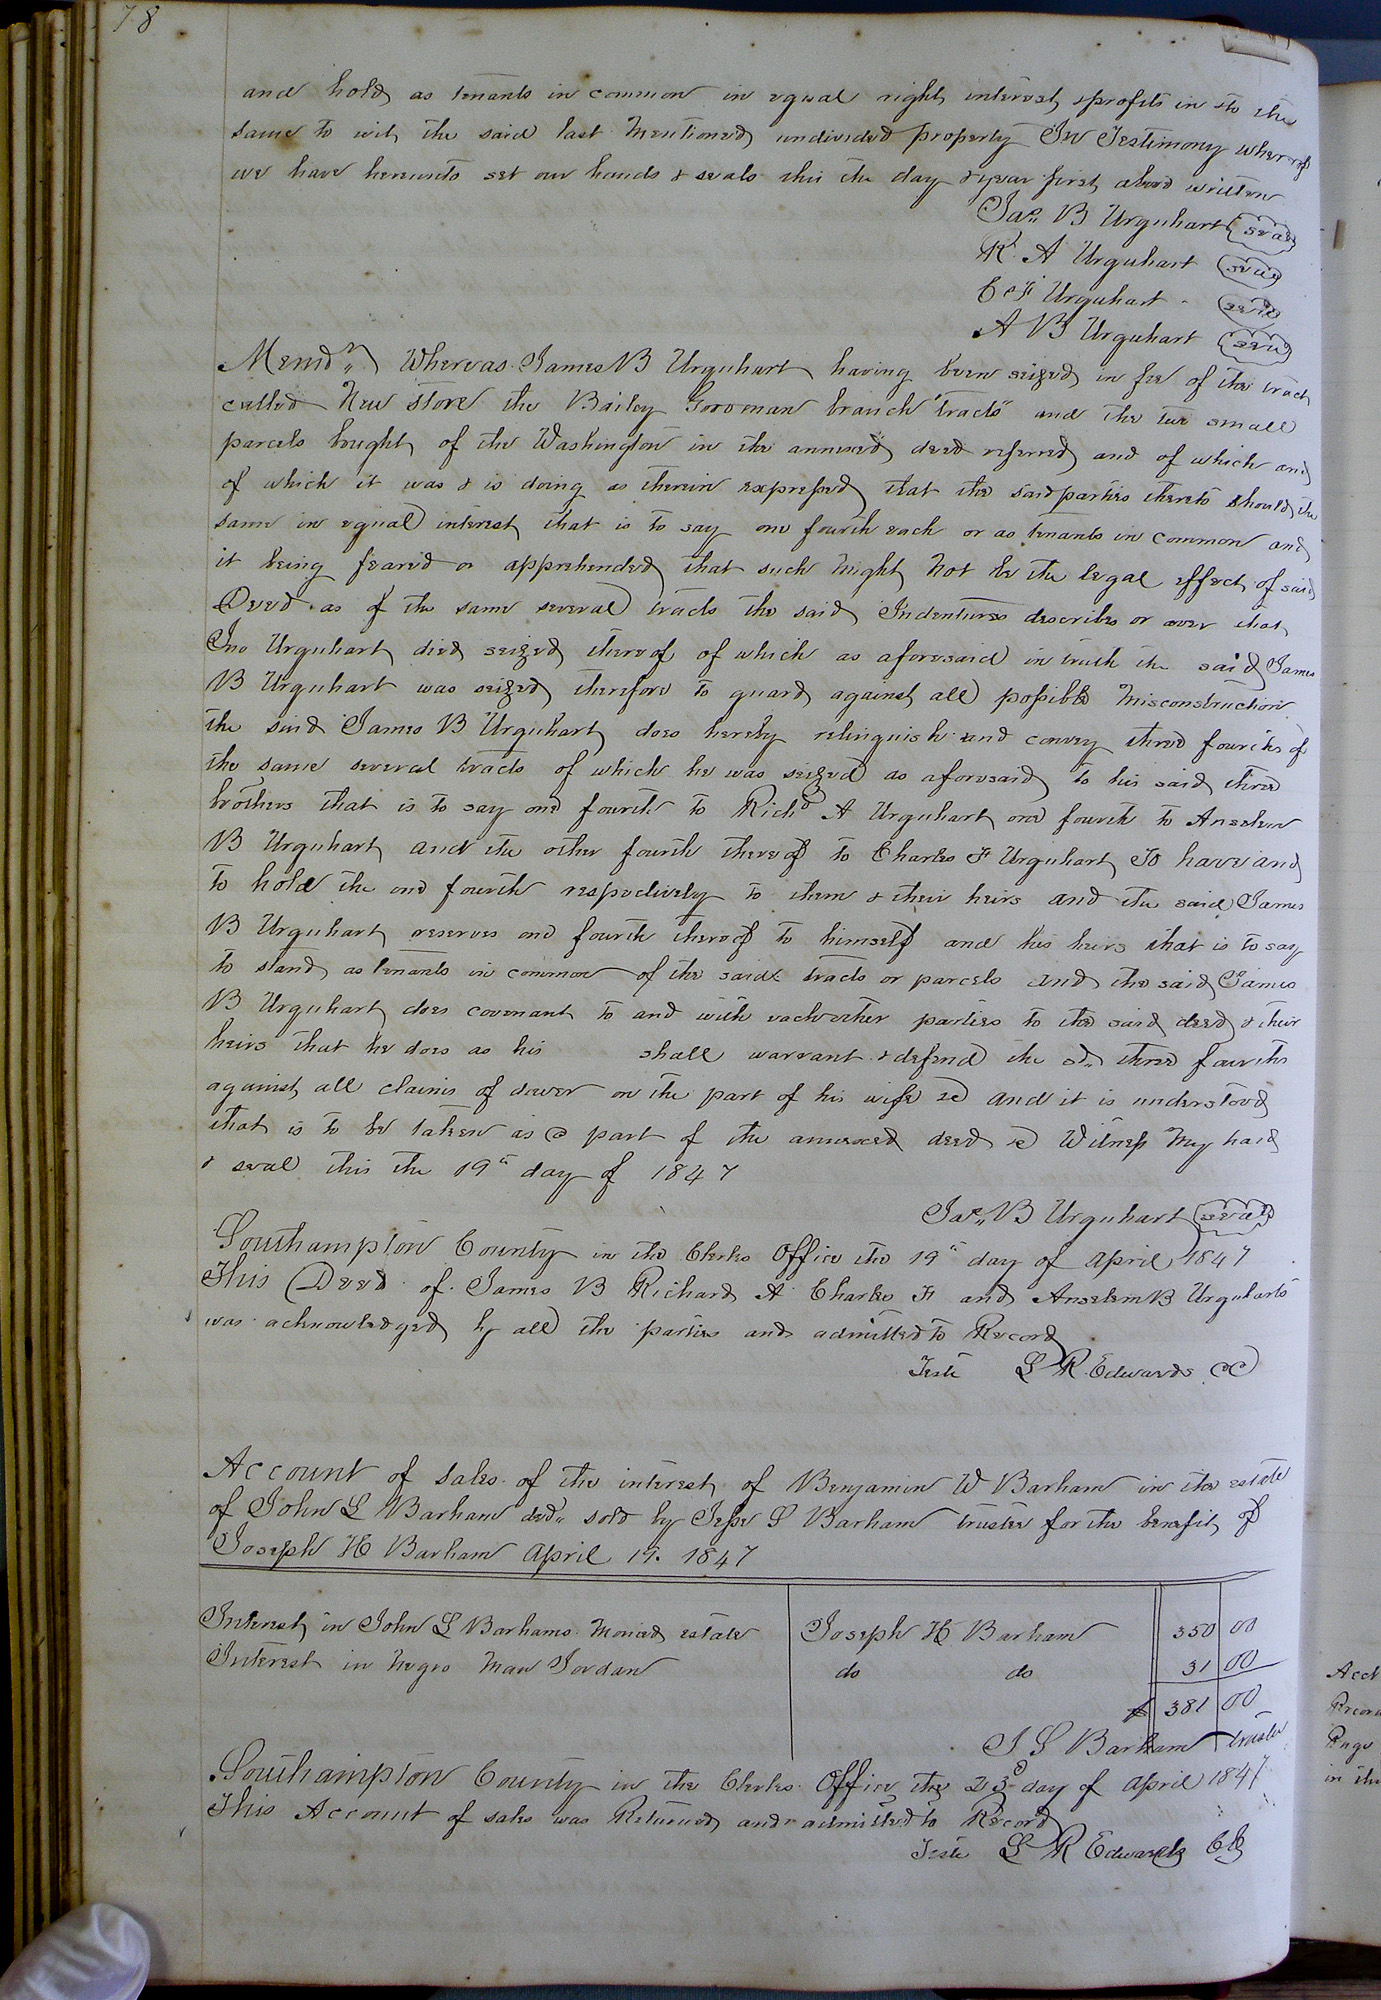 78
and hold as tenants in common in equal right interest & profits in & to the
same to wit the said last mentioned undivided property In Testimony whereof
we have hereunto set our hands & seals this the day & year first above written
Jas. B Urquhart seal
R. A Urquhart seal
C F Urquhart seal
A B Urquhart seal
Memdm Whereas James B Urquhart having been seized in fee of the tract
called New Store the Bailey Gooman branch "tracts" and the two small
parcels bought of the Washington in the annexed deed referred and of which and
of which it was & is doing as therein expressed that the said parties thereto should the
same in equal interest that is to say one fourth each or as tenants in common and
it being feared or apprehended that such might not be the legal effect of said
Deed as of the same several tracts the said Indentures describes or aver that
Jno Urquhart died seized thereof of which as aforesaid in truth the said James
B Urquhart was seized therefore to guard against all possible misconstruction
the said James B Urquhart does hereby relinquish and convey three fourths of
the same several tracts of which he was seized as aforesaid to his said three
brothers that is to say one fourth to Richd A Urquhart one fourth to Anselem
B Urquhart and the other fourth thereof to Charles F Urquhart To have and
to hold the one fourth respectively to them & their heirs and the said James
B Urquhart reserves one fourth thereof to himself and his heirs that is to say
to stand as tenants in common of the said tracts or parcels and the said James
B Urquhart does covenant to and with each other parties to the said deed & their
heirs that he does as his shall warrant & defend the sd. three fourths
against all claims of dower on the part of his wife &c and it is understood
that is to be taken as a part of the annexed deed &c Witness my hand
& seal this the 19th day of 1847
Jas. B Urquhart seal
Southampton County in the Clerks Office the 19th day of April 1847
This Deed of James B Richard A Charles F and Anselem B Urquharts
was acknowledged by all the parties and admitted to Record
Teste L R Edwards CC
Account of sales of the interest of Benjamin W Barham in the estate
of John L Barham decd. sold by Jesse S Barham trustee for the benefit of
Joseph H Barham April 19. 1847
Interest in John L Barhams monied estate Joseph H Barham 350 00
Interest in Negro Man Jordan do do 31 00
$ 381 00
J S Barham trustee
Southampton County in the Clerks Office the 23d day of April 1847
This Account of sales was Returned and admitted to Record
Teste L R Edwards Clk
Acct
Record
Page
in the